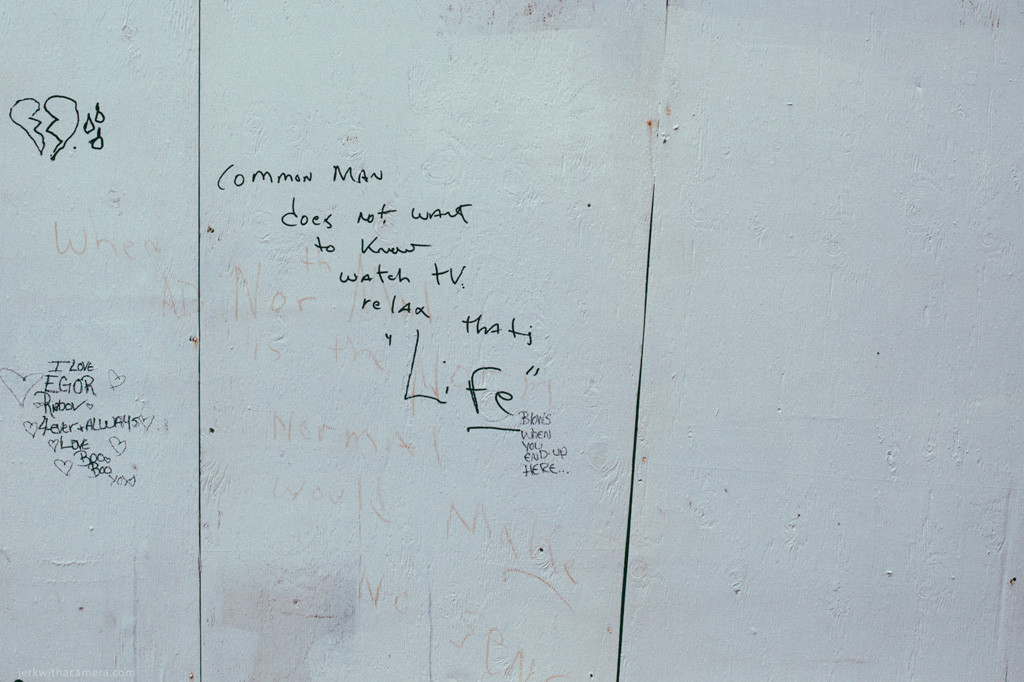 COMMON MAN
does not want
to know
watch TV.
relax
thats
"LiFe"
Blows
WHEN
YOU
END-UP
HERE...
I LOVE
EGOR
4ever + ALLWAYS
LOVE
BOO
BOO
XOXO
When
Nor
is the
Normal
would
Make
No
jerkwithacamera.com